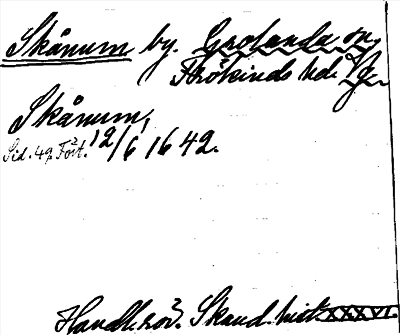 Skånum by. Grolanda sn,
Frökinds hd. Vg.
Skånum,
Sid. 49. Fört. 12/6 1642.
Handl. rör. Skand. hist. XXXVI.